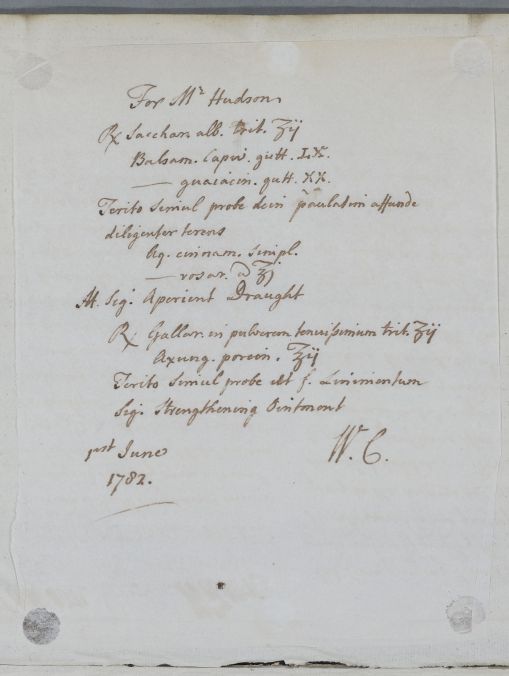 For Mr Hudson
℞ Sacchar. alb. trit. ʒij
Balsam. Capiv. gutt. LX.
—— guaiacin. gutt. XX.
Terito simul probe dein paulatim affunde
diligenter terens
Aq. cinnam. simpl.
—— rosar. a ℥j
M. Sig. Aperient Draught
℞ Gallar. in pulverem tenuissimum trit. ʒij
Axung. porcin. ℥ij
Terito simul probe ut f. Linimentum
Sig. Strengthening Ointment
1st June
W. C.
1782.